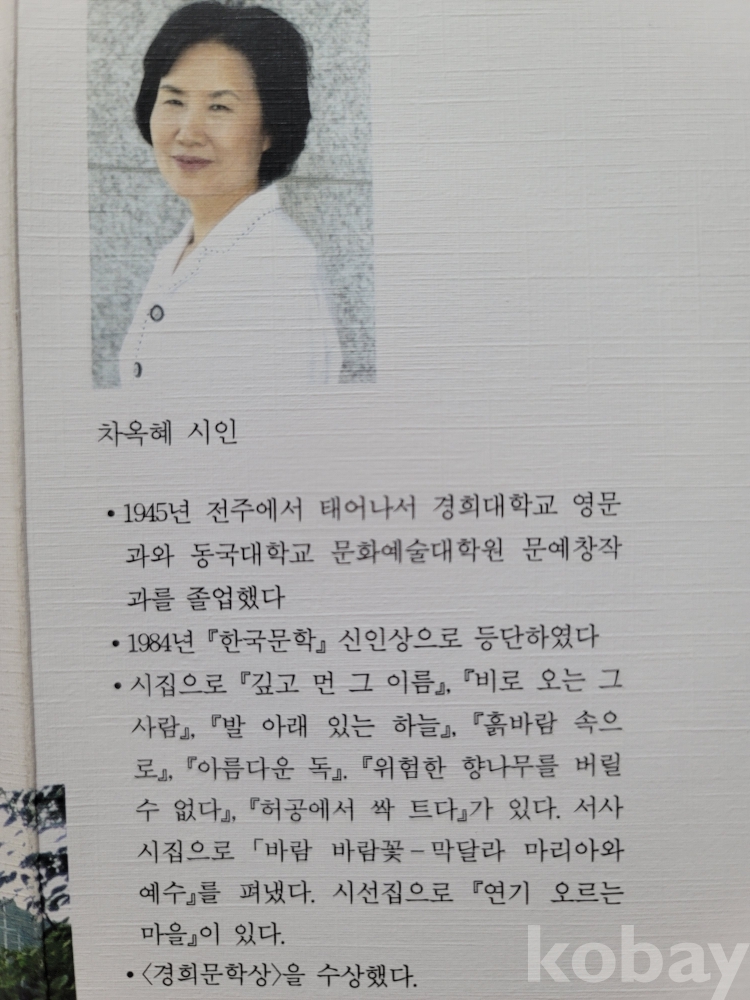 차옥혜 시인
• 1945년 전주에서 태어나서 경희대학교 영문
과와 동국대학교 문화예술대학원 문예창작
과를 졸업했다
• 1984년 『한국문학』 신인상으로 등단하였다
• 시집으로 『깊고 먼 그 이름』, 『비로 오는 그
사람』, 『발 아래 있는 하늘』, 『흙바람 속으
로』, 『아름다운 독』. 『위험한 향나무를 버릴
수 없다』, 『허공에서 싹 트다』가 있다. 서사
시집으로 「바람 바람꽃-막달라 마리아와
예수』를 펴냈다. 시선집으로 『연기 오르는
마을』이 있다.
• 〈경희문학상〉을 수상했다.
kobay